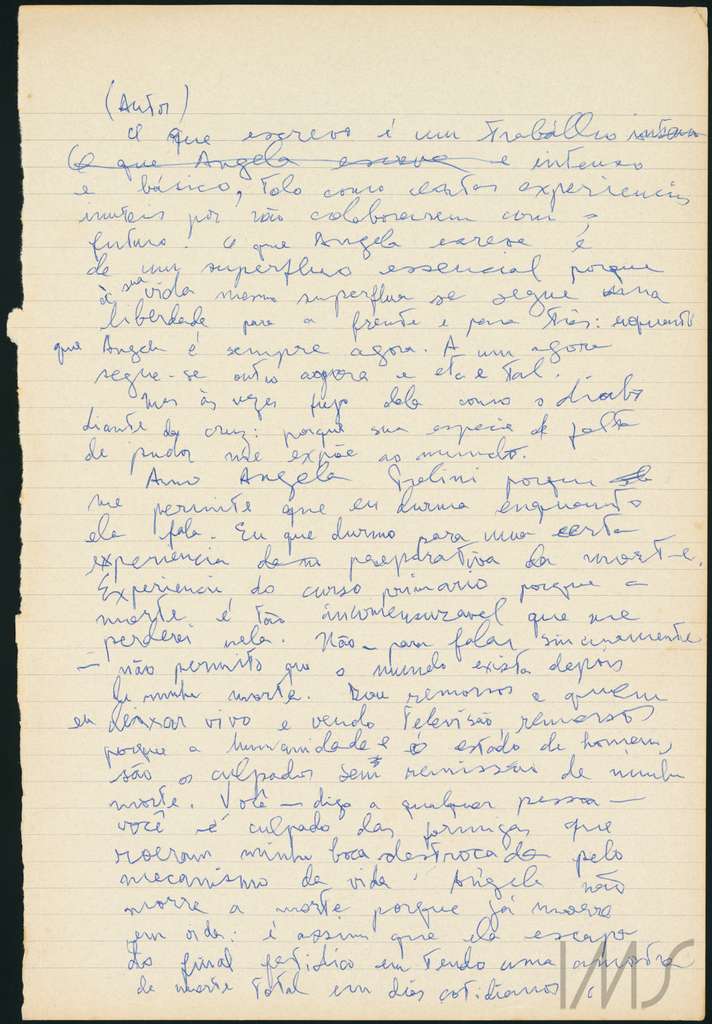 (Autor)
O que escrevo é um trabalho intenso
O que Angela escreve e intenso
e básico, tolo como certas experiencias
inuteis por não colaborarem com o
futuro. O que Angela escreve é
de um superfluo essencial porque
à sua vida mesmo superflua se segue uma
liberdade para a frente e para trás: enquanto
que Angela é sempre agora. A um agora
segue-se outro agora e etc e tal.
Mas às vezes fujo dela como o diabo
diante da cruz: porque sua especie de falta
de pudor me expõe ao mundo.
Amo Angela Pralini porque ela
me permite que eu durma enquanto
ela fala. Eu que durmo para uma certa
experiencia preparativa da morte.
Experiencia do curso primario porque a
morte é tão incomensuravel que me
perderei nela. Não - para falar sinceramente
- não permito que o mundo exista depois
de minha morte. Dou remorsos a quem
eu deixar vivo e vendo televisão, remorsos
porque a humanidade e o estado de homem,
são os culpados sem remissão de minha
morte. Você - digo a qualquer pessoa -
você é culpado das formigas que
roeram minha boca destroçada pelo
mecanismo da vida. Angela não
morre a morte porque já morre
em vida: é assim que ela escapa
do final fatidico em tendo uma amostra
de morte total em dias cotidianos.
IMS